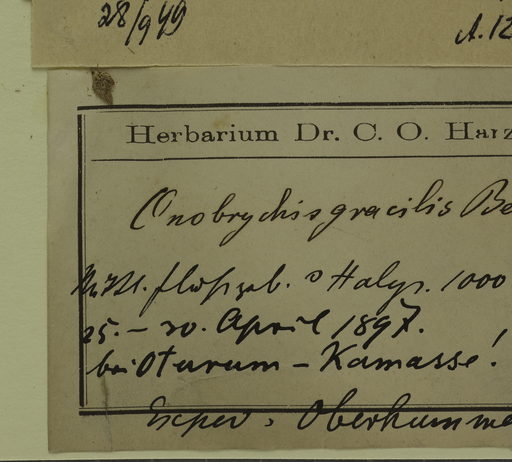 28/9 49
A. 12
Herbarium Dr. C. O. Harz
Onobrychis gracilis Be
Mittl. flußgeb. Halys. 1000
25. – 30. April 1897.
bei Oturum – Kamasse!
Exped. Oberhumme